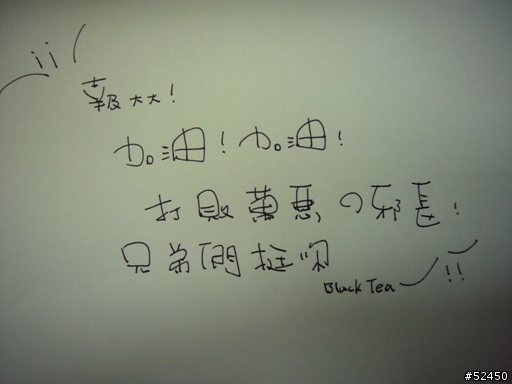 ii
報大大!
加油!加油!
打敗萬惡の邪長!
兄弟們挺你
Black Tea
!!
#52450